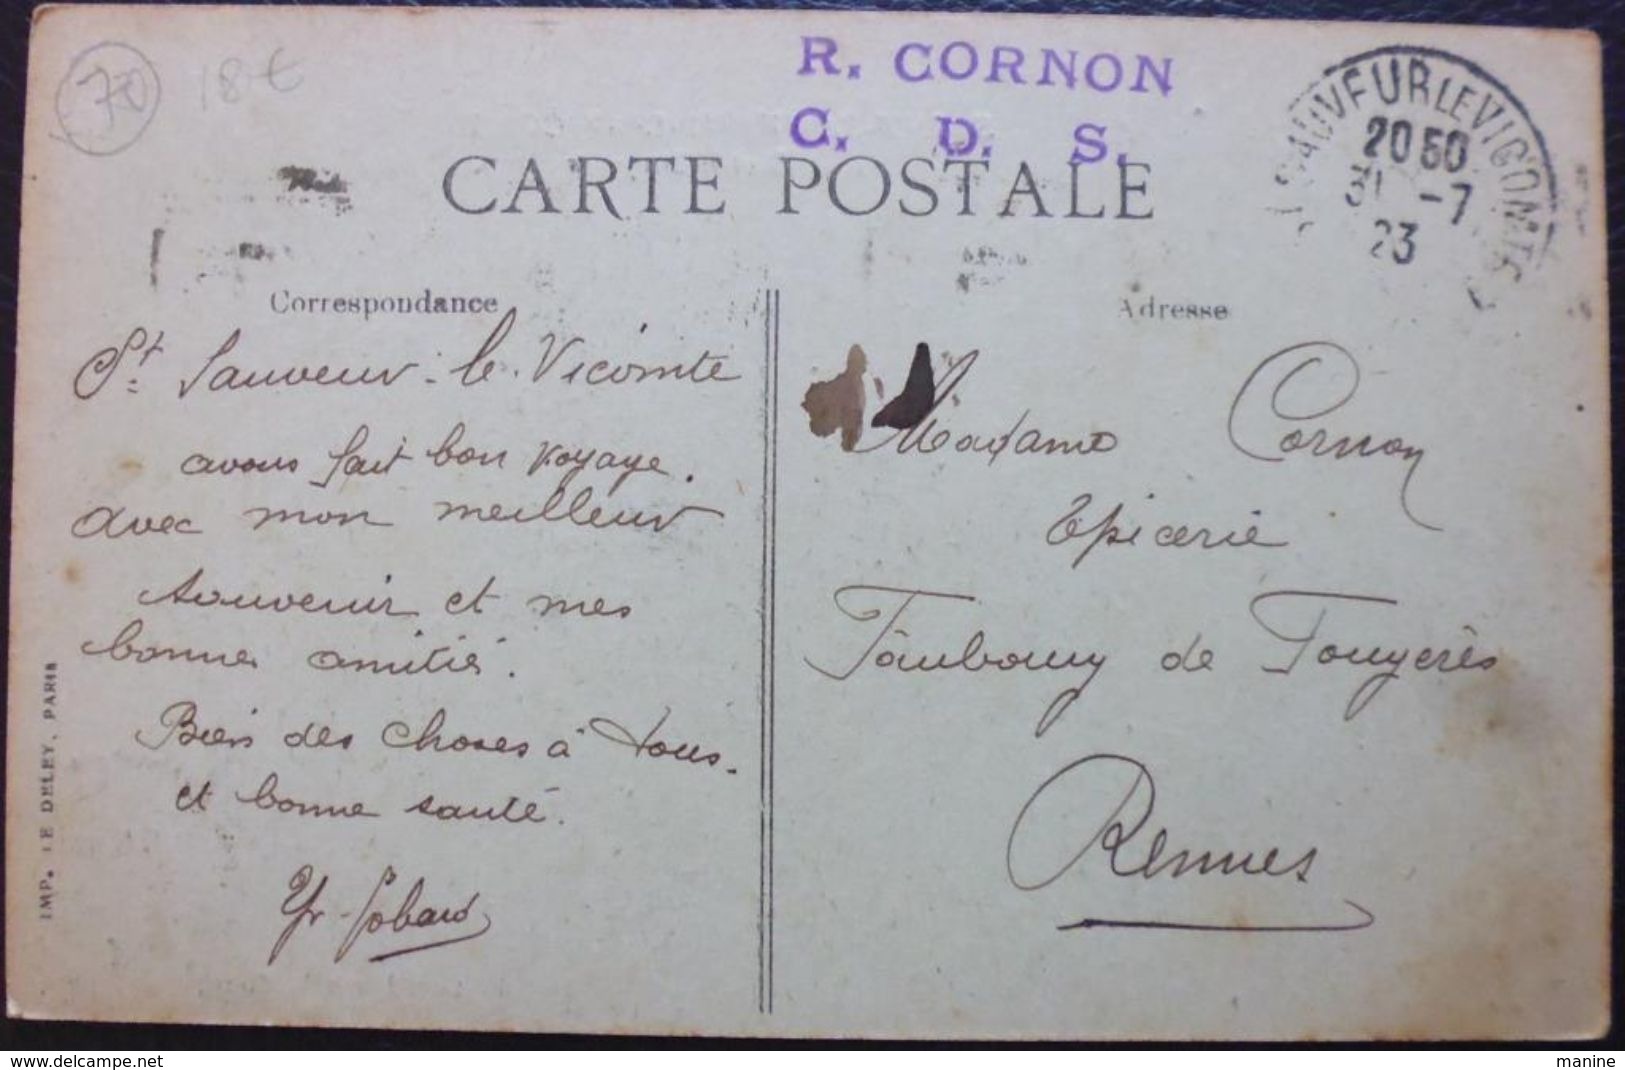 70
18€
R. CORNON
C. D. S.
CARTE POSTALE
ST SAUVEUR LE VICOMTE
20 50
31 -7
23
Correspondance
St Sauveur-le-Vicomte
avons fait bon voyage.
avec mon meilleur
souvenir et mes
bonnes amitiés.
Bien des choses à tous.
et bonne santé.
Jobard
Adresse
Madame Cornon
Epicerie
Faubourg de Fougères
Rennes
IMP. LE DELEY, PARIS
www.delcampe.net
manine